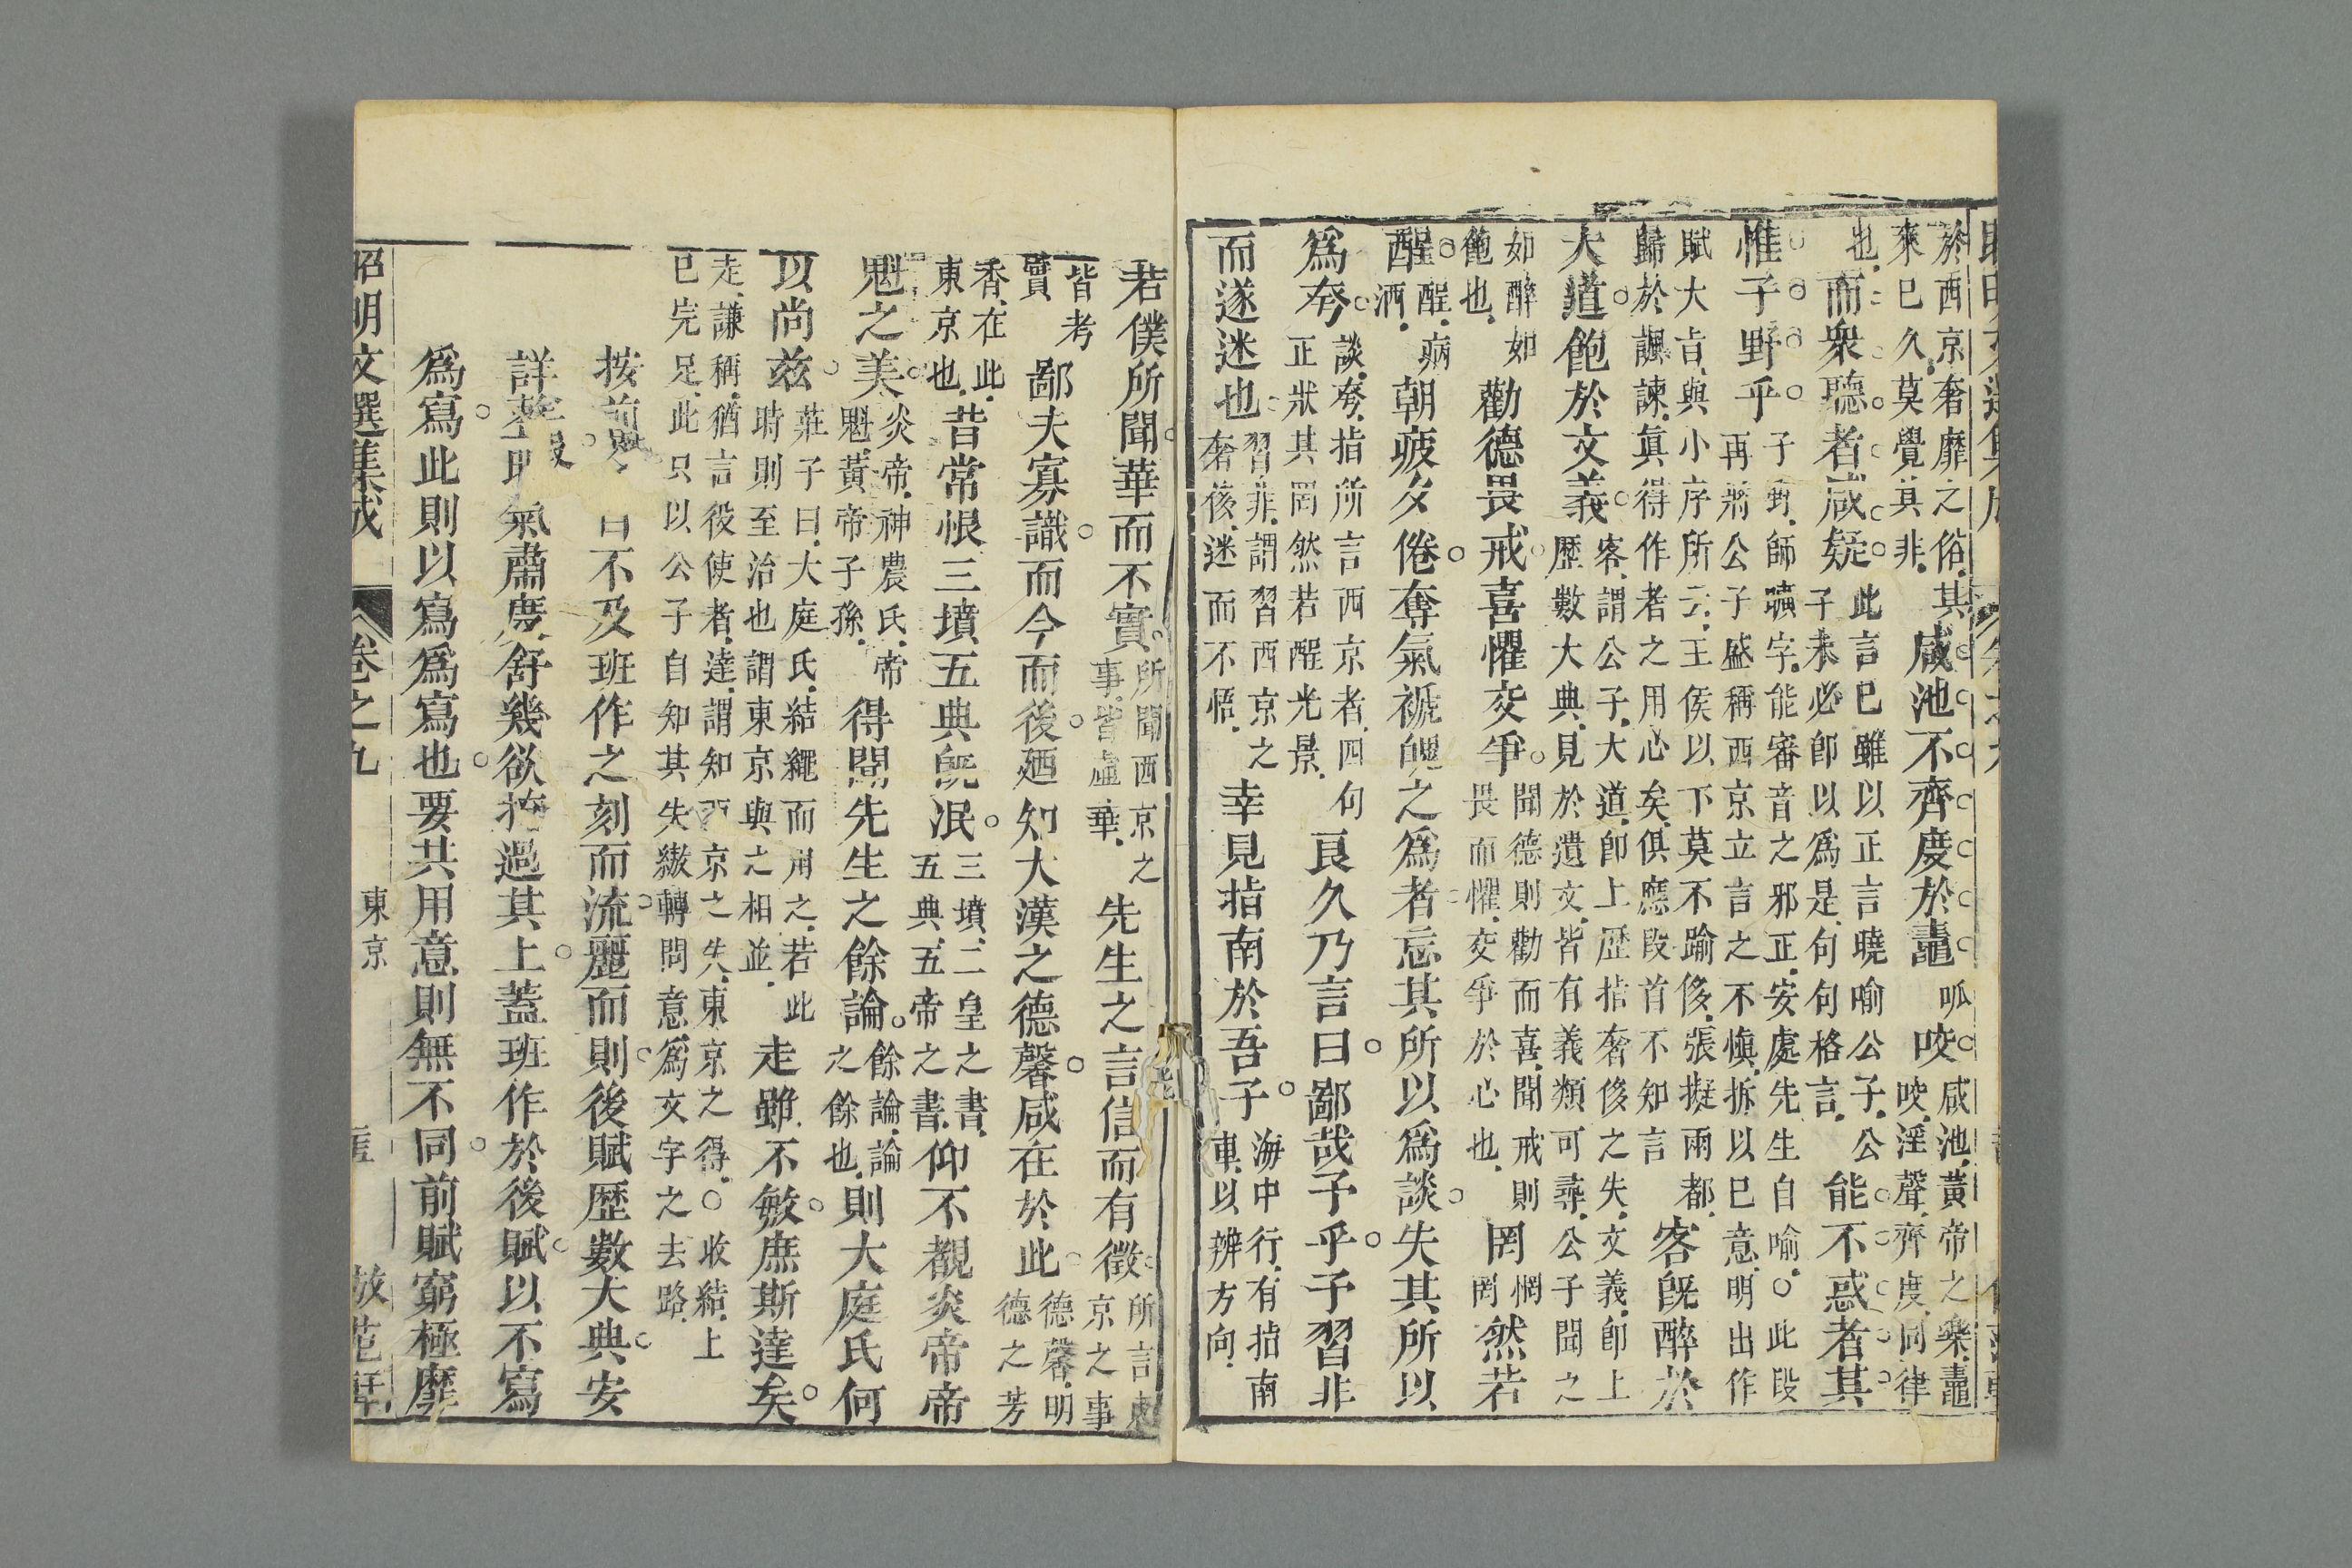 於西京奢靡之俗其
來巳久莫覺其非
咸池不齊度於䵷
呱
咬
咸池黃帝之樂䵷
咬淫聲齊度同律
也
而衆聽者咸疑
此言巳雖以正言曉喻公子公
子未必卽以爲是句句格言
能不惑者其
惟子野乎
子野師曠字能審音之邪正安處先生自喻○此段
再將公子盛稱西京立言之不愼拆以巳意明出作
賦大旨與小序所云王侯以下莫不踰侈張擬兩都
歸於諷諫眞得作者之用心矣俱應段首不知言
客旣醉於
大道飽於文義
客謂公子大道卽上歷指奢侈之失文義卽上
歷數大典見於遺文皆有義類可尋公子聞之
如醉如
飽也
勸德畏戒喜懼交爭
聞德則勸而喜聞戒則
畏而懼交爭於心也
罔
惘
罔
然若
醒
醒病
酒
朝疲夕倦奪氣褫魄之爲者忘其所以爲談失其所以
爲夸
談夸指所言西京者四句
正狀其罔然若醒光景
良久乃言曰鄙哉予乎予習非
而遂迷也
習非謂習西京之
奢侈迷而不悟
幸見指南於吾子
海中行有指南
車以辨方向
若僕所聞華而不實
所聞西京之
事皆虛華
先生之言信而有徵
所言東
京之事
皆考
實
鄙夫寡識而今而後廼知大漢之德馨咸在於此
德馨明
德之芳
香在此
東京也
昔常恨三墳五典旣泯
三墳三皇之書
五典五帝之書
仰不覩炎帝帝
魁之美
炎帝神農氏帝
魁黃帝子孫
得聞先生之餘論
餘論論
之餘也
則大庭氏何
以尚茲
莊子曰大庭氏結繩而用之若此
時則至治也謂東京與之相並
走雖不敏庶斯達矣
走謙稱猶言役使者達謂知西京之失東京之得○收結上
巳完足此只以公子自知其失繳轉問意爲文字之去路
按前
曰不及班作之刻而流麗而則後賦歷數大典安
詳
氣肅度舒幾欲掩過其上蓋班作於後賦以不寫
爲寫此則以寫爲寫也要共用意則無不同前賦窮極靡
昭明文選集成
卷之九
東京